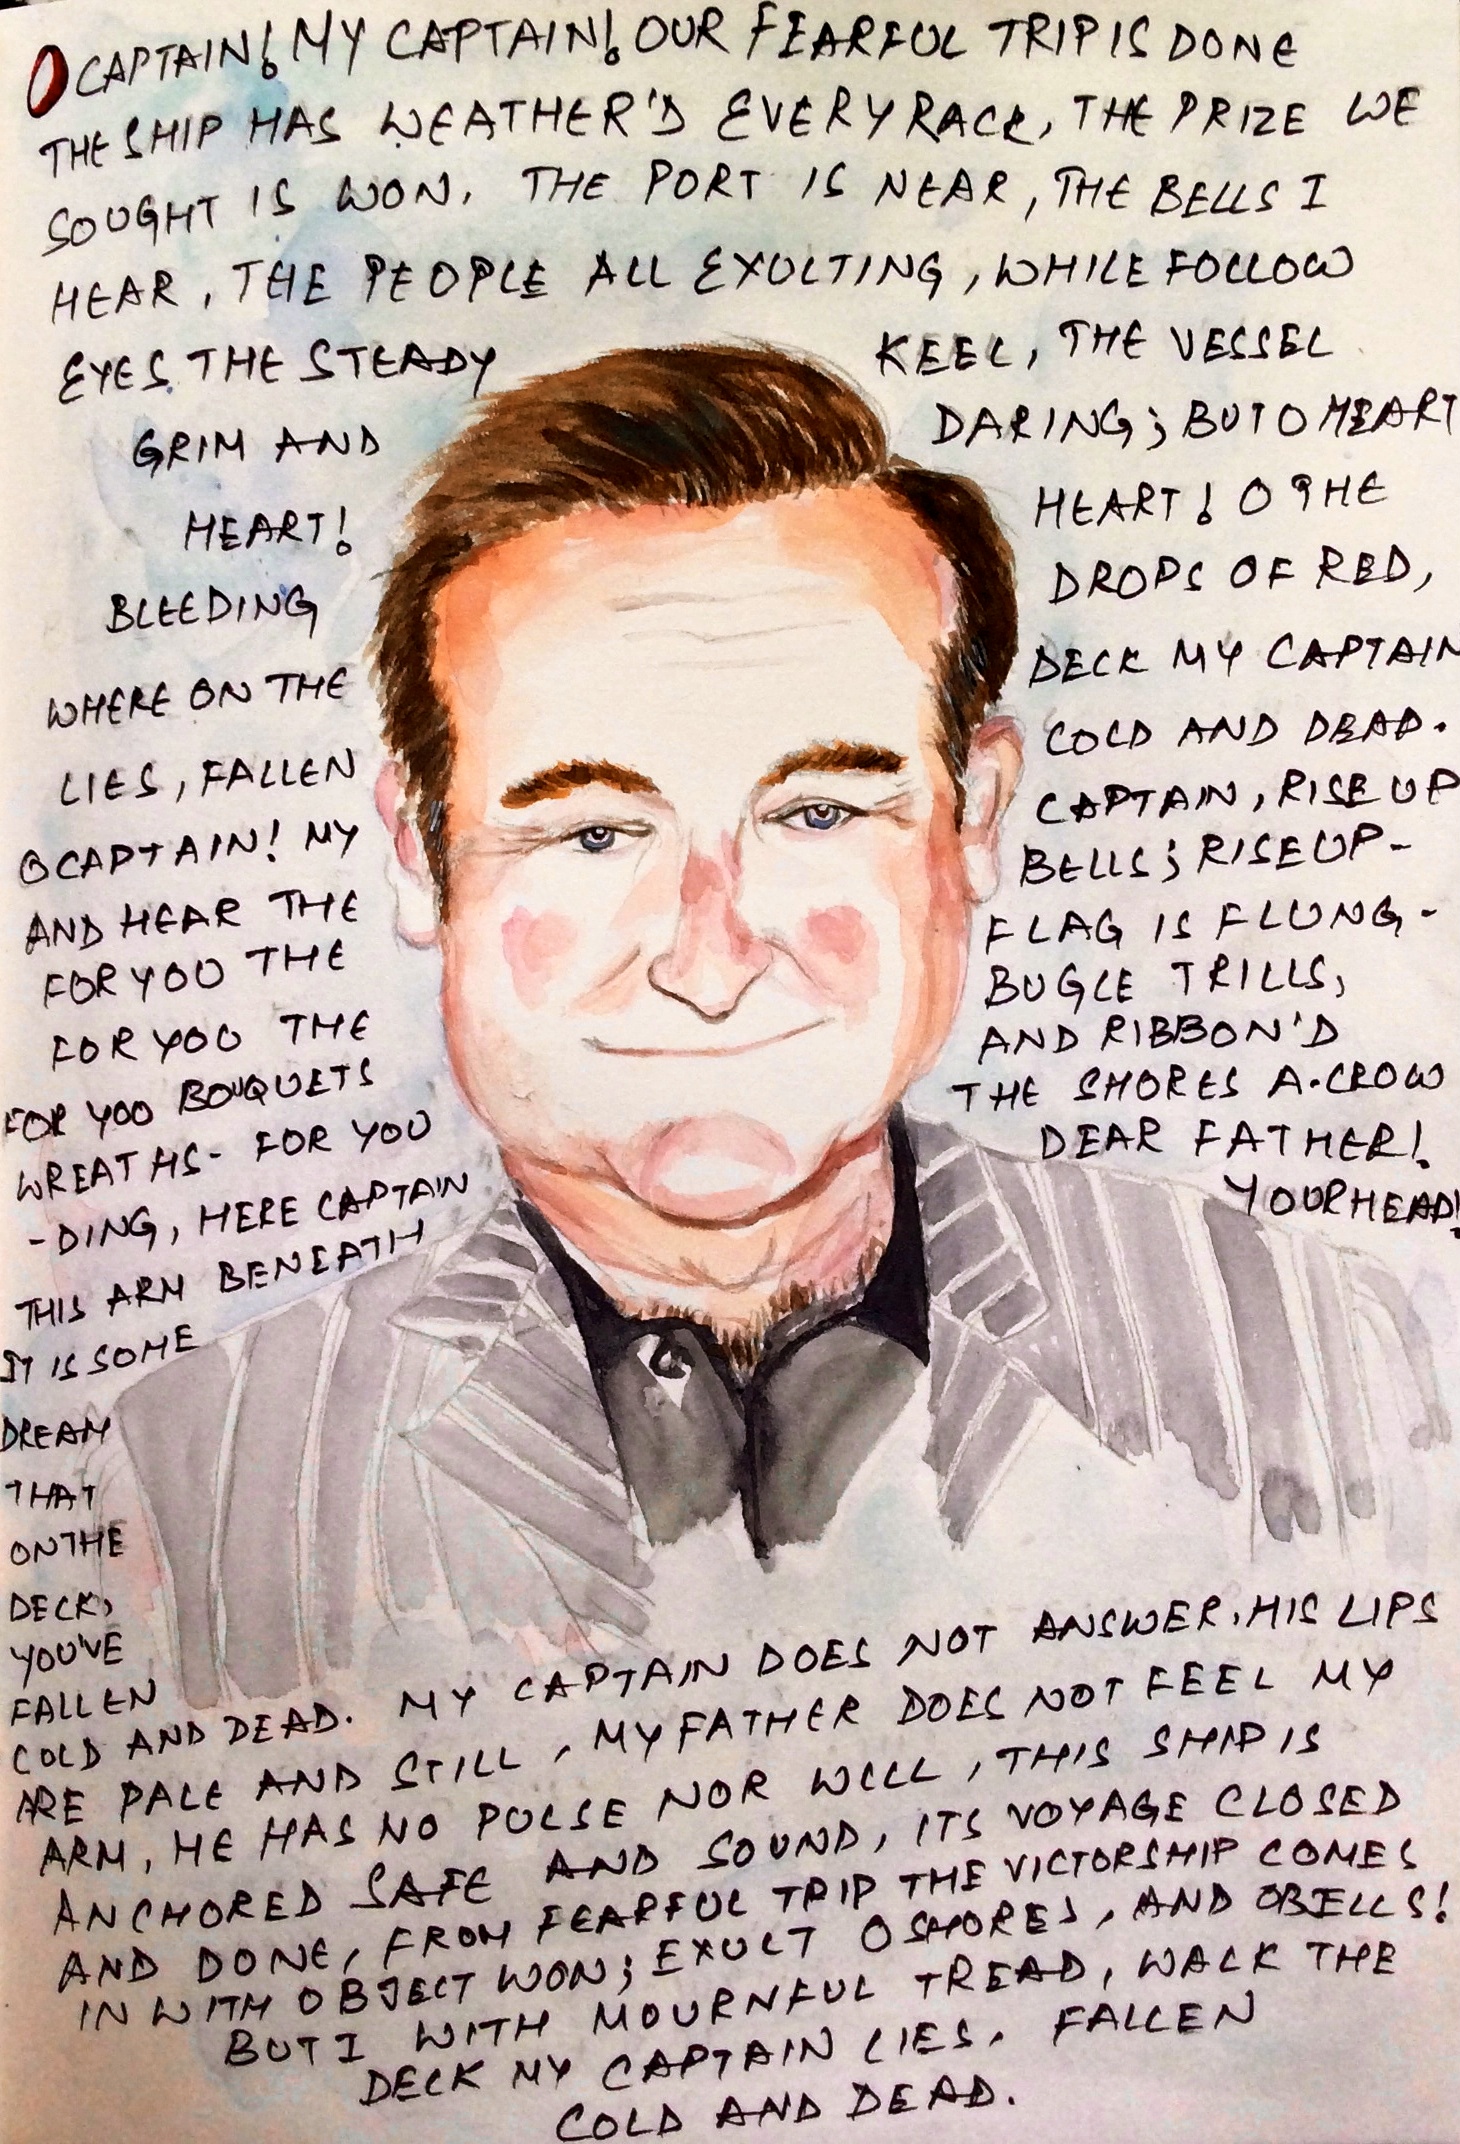 O CAPTAIN! MY CAPTAIN! OUR FEARFUL TRIP IS DONE
THE SHIP HAS WEATHER'D EVERY RACK, THE PRIZE WE
SOUGHT IS WON. THE PORT IS NEAR, THE BELLS I
HEAR, THE PEOPLE ALL EXULTING, WHILE FOLLOW
EYES THE STEADY KEEL, THE VESSEL
GRIM AND DARING; BUT O HEART
HEART! HEART! O THE
BLEEDING DROPS OF RED,
WHERE ON THE DECK MY CAPTAIN
LIES, FALLEN COLD AND DEAD.
O CAPTAIN! MY CAPTAIN, RISE UP
AND HEAR THE BELLS; RISE UP-
FOR YOU THE FLAG IS FLUNG-
FOR YOU THE BUGLE TRILLS;
FOR YOU BOUQUETS AND RIBBON'D
WREATHS- FOR YOU THE SHORES A-CROW
-DING, HERE CAPTAIN DEAR FATHER!
THIS ARM BENEATH YOUR HEAD!
IT IS SOME
DREAM
THAT
ON THE
DECK,
YOU'VE
FALLEN
COLD AND DEAD. MY CAPTAIN DOES NOT ANSWER, HIS LIPS
ARE PALE AND STILL, MY FATHER DOES NOT FEEL MY
ARM, HE HAS NO PULSE NOR WILL, THIS SHIP IS
ANCHORED SAFE AND SOUND, ITS VOYAGE CLOSED
AND DONE, FROM FEARFUL TRIP THE VICTOR SHIP COMES
IN WITH OBJECT WON; EXULT O SHORES, AND O BELLS!
BUT I WITH MOURNFUL TREAD, WALK THE
DECK MY CAPTAIN LIES, FALLEN
COLD AND DEAD.